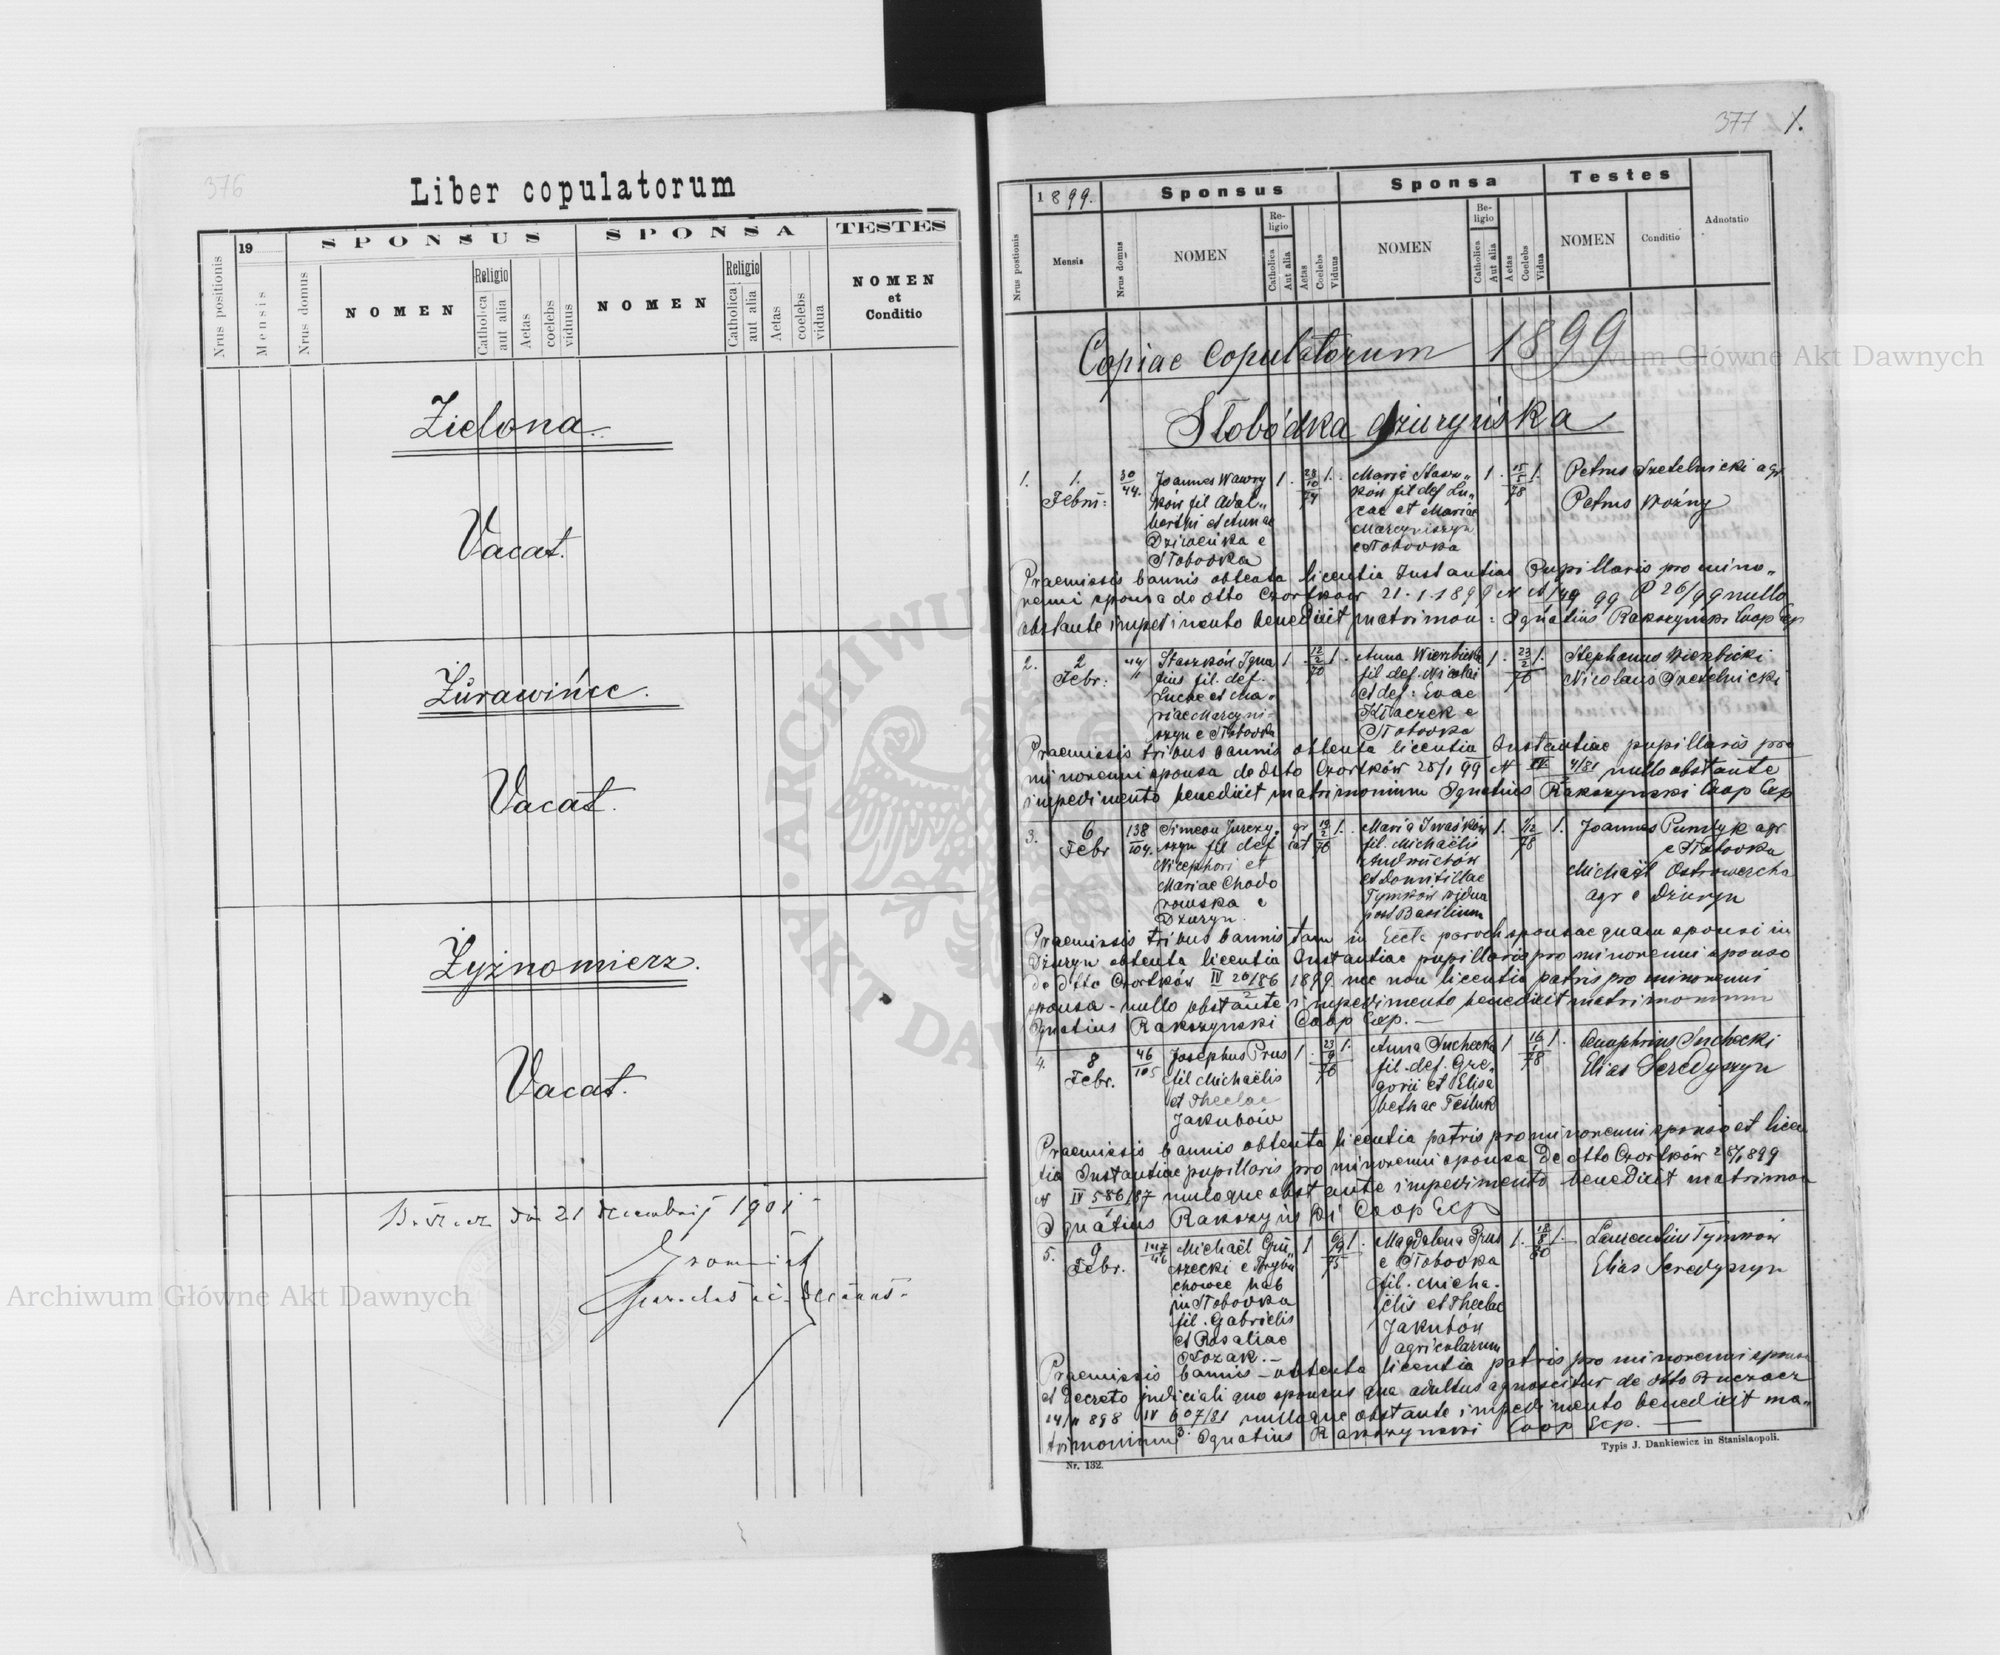 376
Liber copulatorum
Nrus positionis
19
Mensis
Nrus domus
SPONSUS
NOMEN
Religio
Catholica
aut alia
Aetas
coelebs
viduus
SPONSA
NOMEN
Religio
Catholica
aut alia
Aetas
coelebs
vidua
TESTES
NOMEN
et
Conditio
Zielona.
Vacat.
Żurawińce.
Vacat.
Żyżnomierz.
Vacat.
21 decembris 1901
377 1.
Nrus postionis
1899.
Mensis
Nrus domus
Sponsus
NOMEN
Re-
ligio
Catholica
Aut alia
Aetas
Coelebs
Viduus
Sponsa
NOMEN
Re-
ligio
Catholica
Aut alia
Aetas
Coelebs
Vidua
Testes
NOMEN
Conditio
Adnotatio
Copiae Copulatorum 1899
Słobódka dżuryńska
1. 1. Febru: 30/44. Joannes Wawry 1. 28/10/74 1. Maria Stasz„ 1. 15/5/78 1. Petrus Szetelnicki agr
ków fil Adal„ ków fil def Lu„ Petrus Woźny
berthi et Annae cae et Mariae
Dziweńka e Marcyniszyn
Słobodka e Słobodka
Praemissis bannis obtenta licentia Instantiae Pupillaris pro mino„
renni sponsa de dtto Czortków 21.1.1899 P 26/99 nullo
obstante impedimento benedixit matrimon: Ignatius Rakszynski Coop Exp
2. 2 Febr: 44/ Staszków Igna 1. 12/2/70 1. Anna Wierzbicka 1. 23/2/76 1. Stephanus Wierzbicki
tius fil. def. fil def. Nicolai Nicolaus Szetelnicki
Lucae et Ma- et def: Evae
riae Marcyni- Kłaczek e
szyn e Słobodka Słobodka
Praemissis tribus bannis obtenta licentia Instantiae pupillaris pro
minorenni sponsa de dtto Czortków 28/1 99 N IV 4/81 nullo obstante
impedimento benedixit matrimonium Ignatius Rakszynski Coop Exp
3. 6 Febr 138/104. Simeon Jurczy- gr. cat 19/2/76 1. Maria Iwaśków 1. 2/12/78 1. Joannes Pundyk agr
szyn fil def fil. Michaëlis e Słobodka
Nicephori et Andruchów Michaël Ostrowercha
Mariae Chodo et Domitillae agr e Dżuryn
rowska e Tymków vidua
Dżuryn. post Basilium
Praemissis tribus bannis tam in Eccla paroch sponsae quam sponsi in
Dżuryn obtenta licentia Instantiae pupillaris pro minorenni sponso
de dtto Czortków IV 26/86 1899 nec non licentia patris pro minorenni
sponsa - nullo obstante impedimento benedixit matrimonium
Ignatius Rakszynski Coop Exp.
4. 8 Febr. 46/105 Josephus Prus 1. 23/9/76 1. Anna Suchecka 1 16/1/78 1. Onuphrius Suchecki
fil Michaëlis fil. def. Gre- Elias Seredyszyn
et Theclae gorii et Elisa
Jakubów bethae Tesluk
Praemissis bannis obtenta licentia patris pro minorenni sponso et licen
tia Instantiae pupillaris pro minorenni sponsa de dtto Czortków 28/1 899
N IV 586/87 nulloque obstante impedimento benedixit matrimon
Ignatius Rakszyński Coop Exp
5. 9 Febr. 147/46 Michaël Gru„ 1 6/9/75 1. Magdalena Prus 1. 18/8/80 1. Laurentius Tymków
szecki e Trybu e Słobodka Elias Seredyszyn
chowce hab fil. Micha-
in Słobodka ëlis et Theclae
fil. Gabrielis Jakubów
et Rosaliae agricolarum
Kozak.
Praemissis bannis - obtenta licentia patris pro minorenni sponsa
et decreto judiciali quo sponsus qua adultus agnoscitur de dtto Buczacz
14/ 898 IV 607/81 nulloque obstante impedimento benedixit ma„
trimonium Ignatius Rakszynski Coop Exp.
Nr. 132.
Typis J. Dankiewicz in Stanislaopoli.
Archiwum Główne Akt Dawnych
Archiwum Główne Akt Dawnych